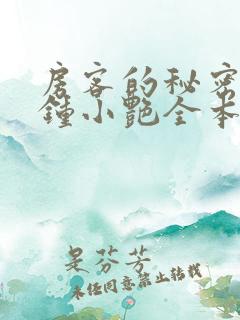 房客的秘密
鍾小艷全本
是芬芳
未经同意禁止转载